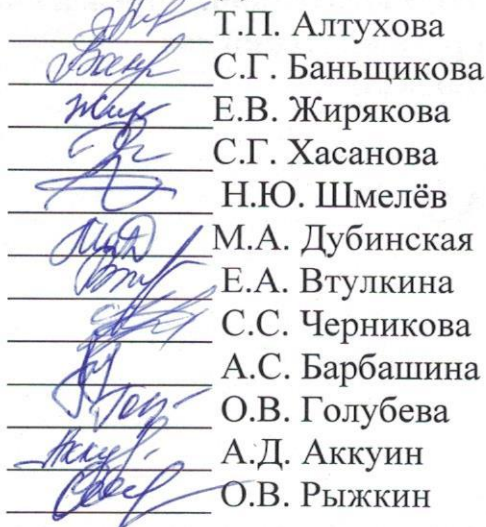 Т.П. Алтухова
С.Г. Баньщикова
Е.В. Жирякова
С.Г. Хасанова
Н.Ю. Шмелёв
М.А. Дубинская
Е.А. Втулкина
С.С. Черникова
А.С. Барбашина
О.В. Голубева
А.Д. Аккуин
О.В. Рыжкин